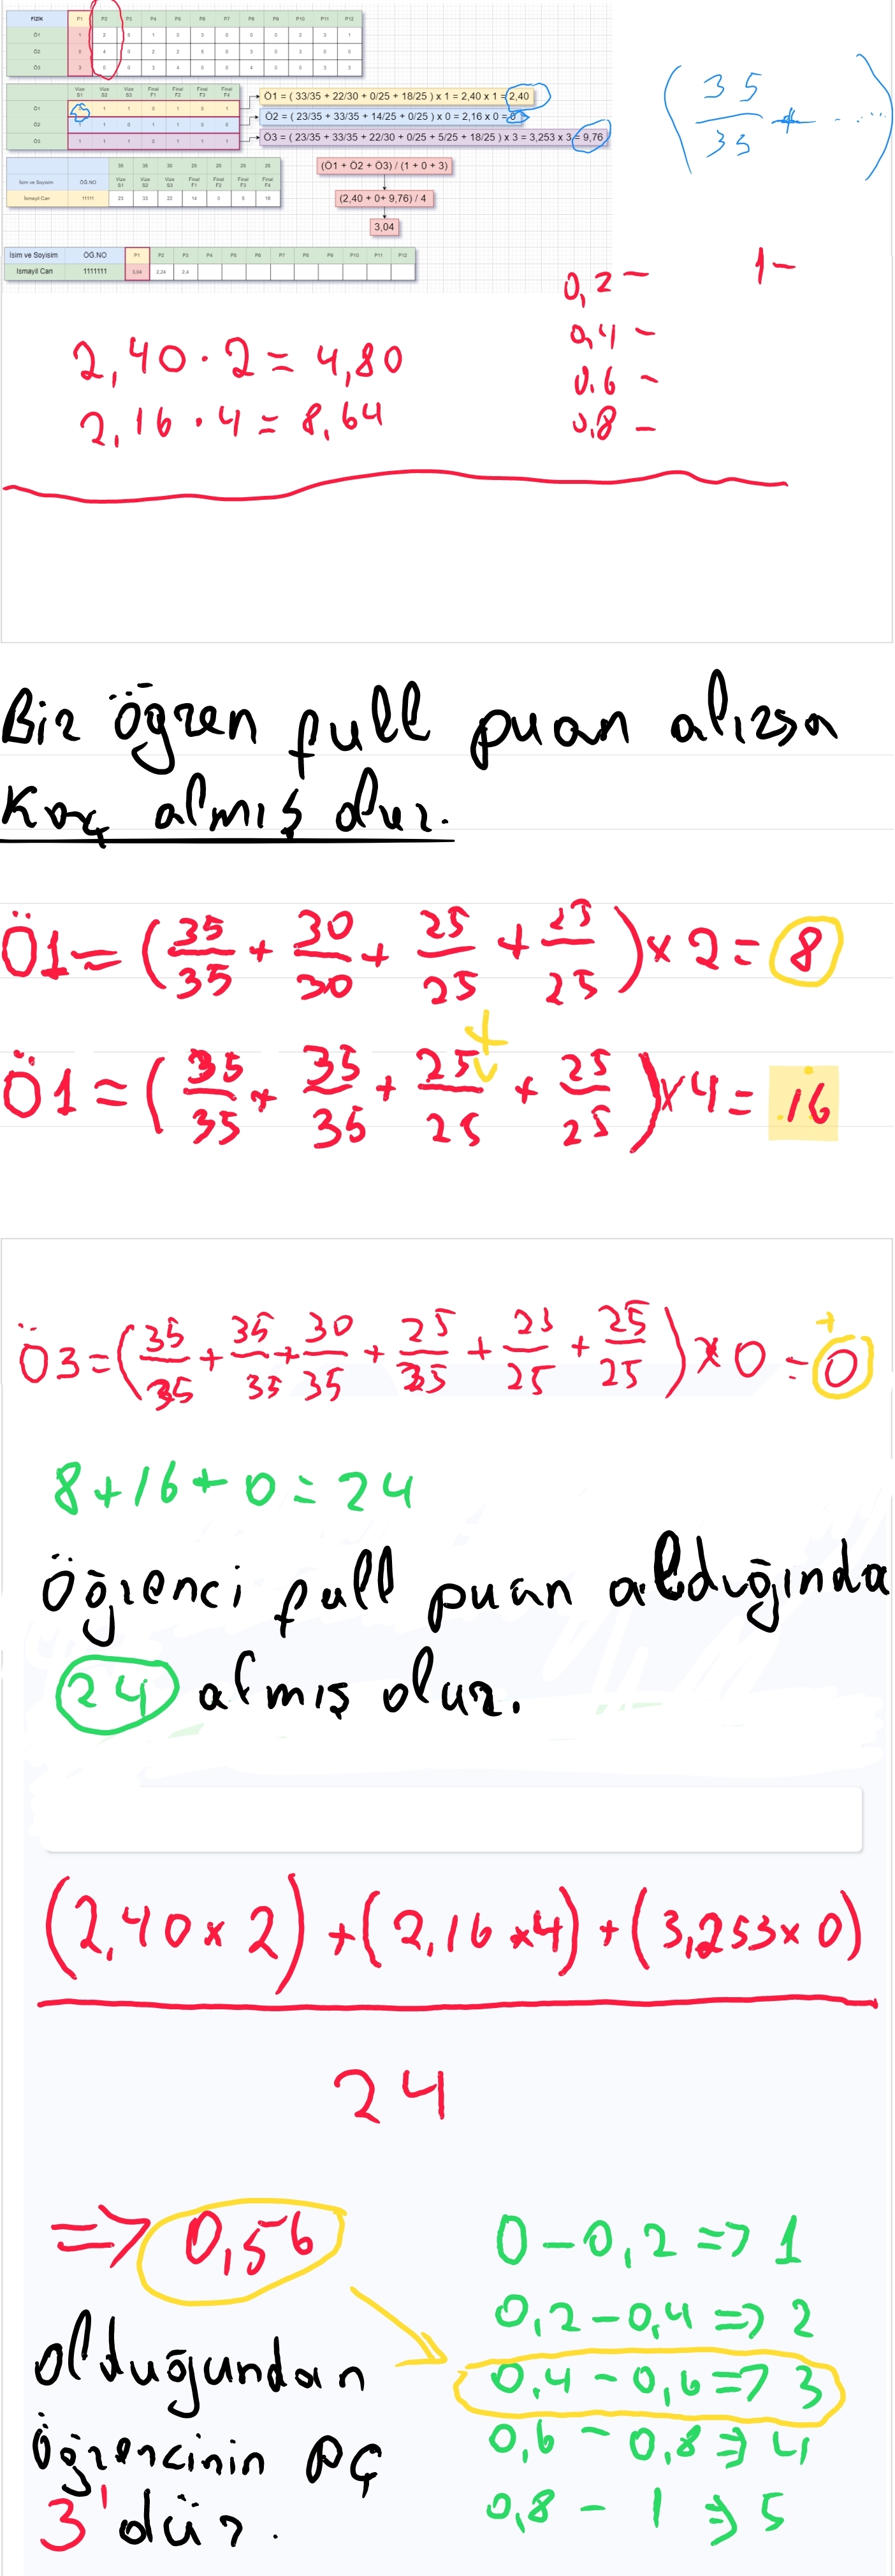 FİZİK P1 P2 P3 P4 P5 P6 P7 P8 P9 P10 P11 P12
Ö1
Ö2
Ö3
Vize S1 Vize S2 Vize S3 Final F1 Final F2 Final F3 Final F4
Ö1 1 1 0 1 0 1
Ö2 1 1 0 1 1 0 0
Ö3 1 1 1 0 1 1 1
Ö1 = ( 33/35 + 22/30 + 0/25 + 18/25 ) x 1 = 2,40 x 1 = 2,40
Ö2 = ( 23/35 + 33/35 + 14/25 + 0/25 ) x 0 = 2,16 x 0 = 0
Ö3 = ( 23/35 + 33/35 + 22/30 + 0/25 + 5/25 + 18/25 ) x 3 = 3,253 x 3 = 9,76
(35/35 + ....)
35 35 30 25 25 25 25
İsim ve Soyisim ÖĞ.NO Vize S1 Vize S2 Vize S3 Final F1 Final F2 Final F3 Final F4
İsmayil Can 11111 23 33 22 14 0 5 18
(Ö1 + Ö2 + Ö3) / (1 + 0 + 3)
(2,40 + 0+ 9,76) / 4
3,04
İsim ve Soyisim ÖĞ.NO P1 P2 P3 P4 P5 P6 P7 P8 P9 P10 P11 P12
Ismayil Can 1111111 3,04 2,24 2,4
0,2 – 1 –
0,4 –
0.6 –
0,8 –
2,40 . 2 = 4,80
2,16 . 4 = 8,64
Bir öğren full puan alırsa
Kaç almış olur.
Ö1 = (35/35 + 30/30 + 25/25 + 25/25) x 2 = 8
Ö1 = (35/35 + 35/35 + 25/25 + 25/25) x 4 = 16
Ö3 = (35/35 + 35/35 + 30/35 + 25/25 + 25/25 + 25/25) x 0 = 0
8 + 16 + 0 = 24
Öğrenci full puan aldığında
24 almış olur.
(2,40 x 2) + (2,16 x 4) + (3,253 x 0)
24
=> 0,56
0 – 0,2 => 1
0,2 – 0,4 => 2
0,4 – 0,6 => 3
0,6 – 0,8 => 4
0,8 – 1 => 5
olduğundan
öğrencinin PÇ
3' dür.